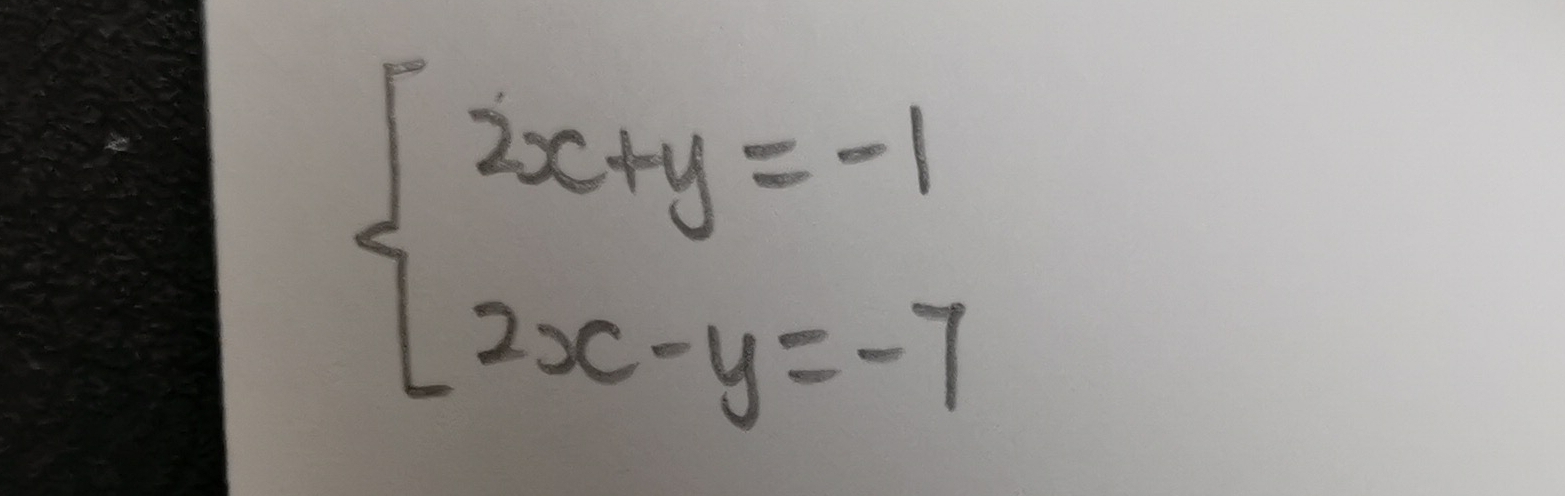 2x+y=-1
2x-y=-7